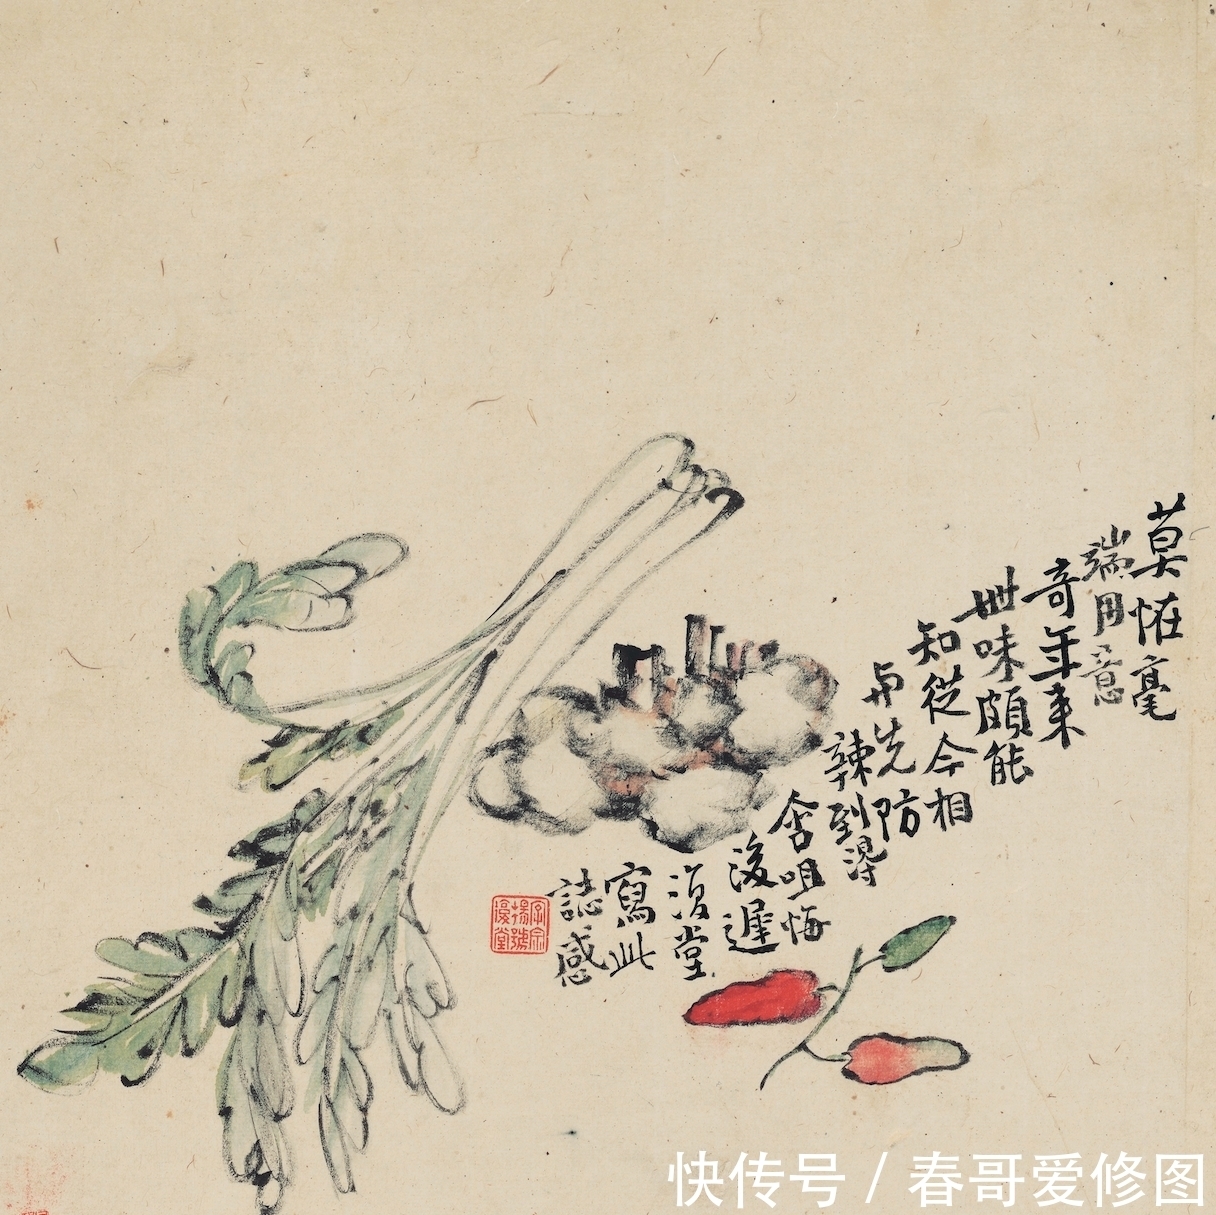 莫恠毫
端用意
奇年来
世味頗能
知從今相
与先防
辣到得
含咀悔
後遲
復堂
寫此
誌感
字宗
揚號
復堂
快传号 / 春哥爱修图